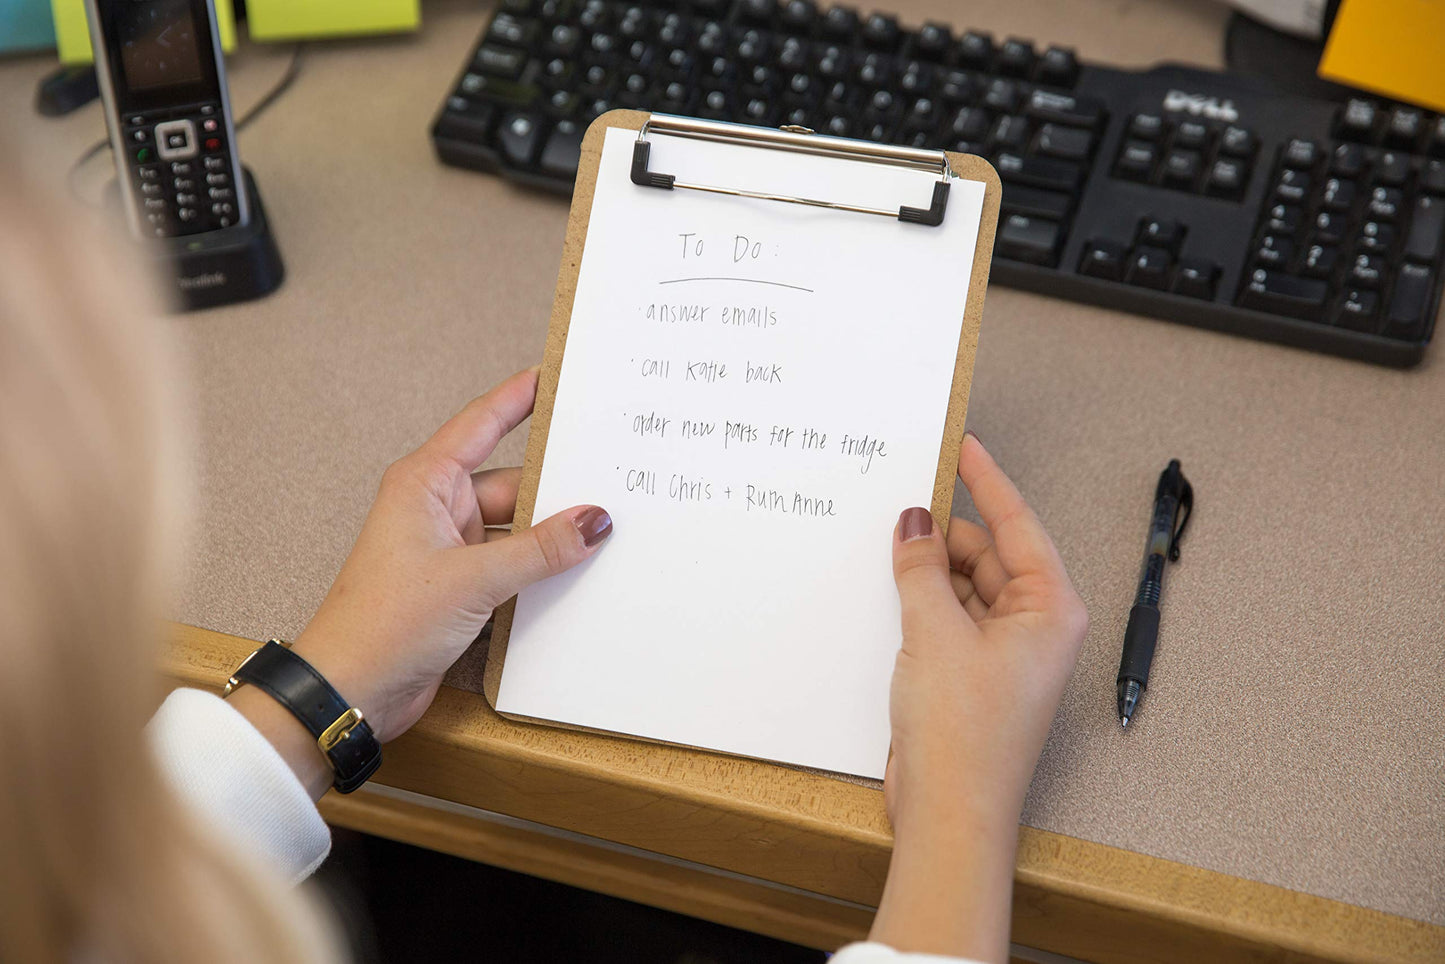 DELL
To Do:
· answer emails
· call Katie back
· order new parts for the fridge
· call Chris + Ruth Anne